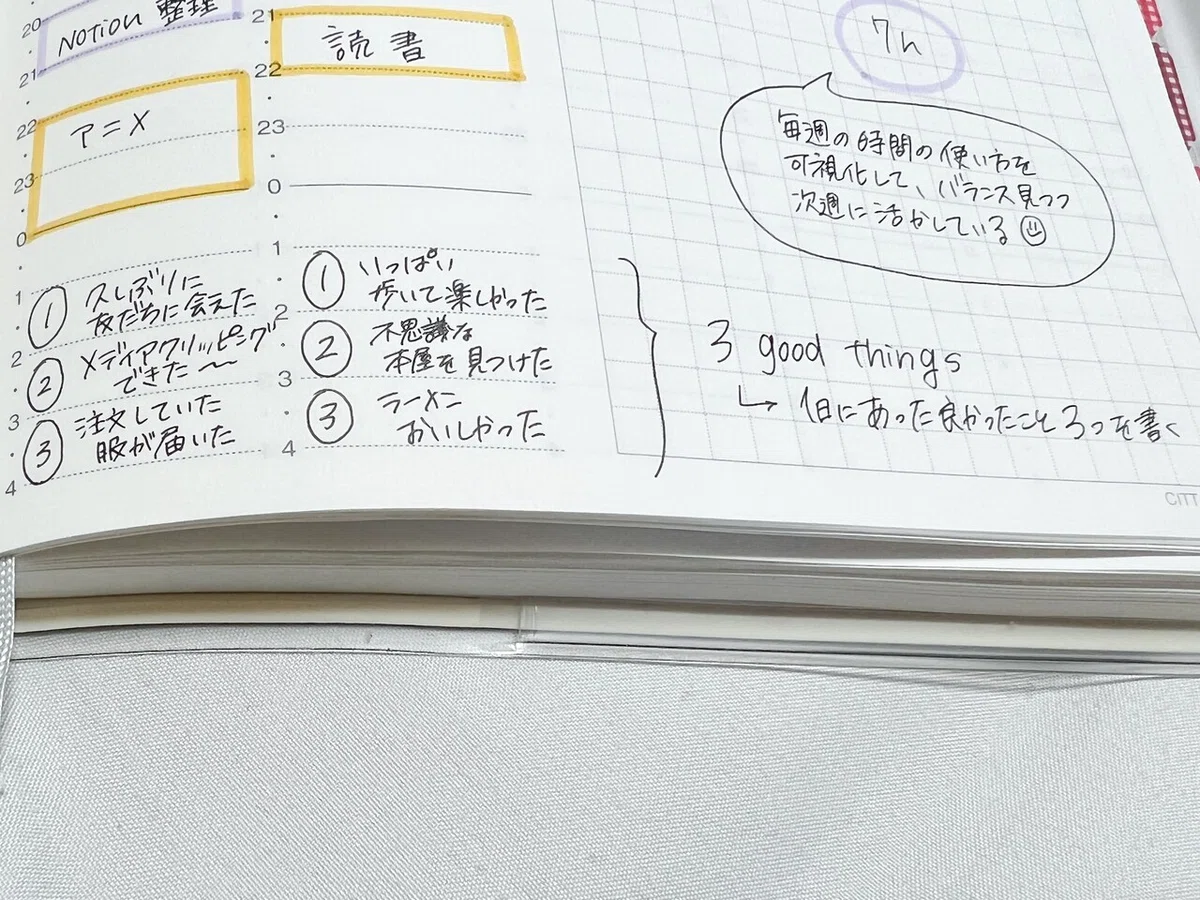 20
NOTION 整理
21
22
アニメ
23
0
1
① 久しぶりに
友だちに会えた
2
② メディアクリッピング
できた〜
3
③ 注文していた
服が届いた
4
21
読書
22
23
0
1
① いっぱい
歩いて楽しかった
2
② 不思議な
本屋を見つけた
3
③ ラーメン
おいしかった
4
7h
毎週の時間の使い方を
可視化して、バランス見つつ
次週に活かしている☺
3 good things
↳ 1日にあった良かったこと3つを書く
CITT